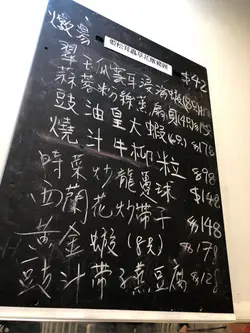 燉湯 $42
翠玉瓜雲耳浸海蝦
蒜蓉粉絲蒸扇貝
豉油皇大蝦 $178
燒汁牛柳粒 $98
時菜炒龍躉球 $148
西蘭花炒帶子 $148
黃金蝦(8隻) $178
豉汁帶子蒸豆腐 $128